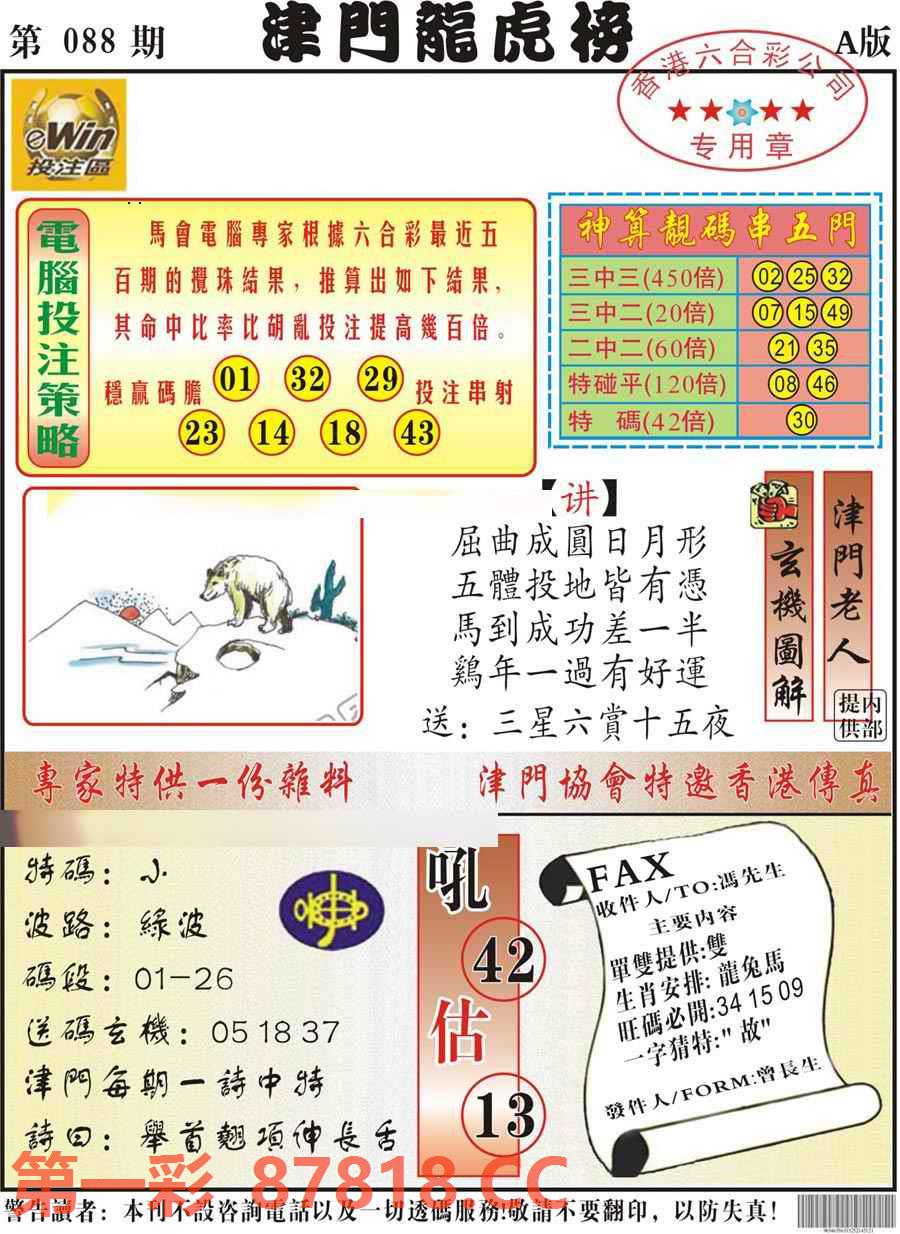 第 088 期
津門龍虎榜
A版
香港六合彩公司
专用章
eWin
投注區
電腦投注策略
馬會電腦專家根據六合彩最近五
百期的攪珠結果，推算出如下結果，
其命中比率比胡亂投注提高幾百倍。
穩贏碼膽 01 32 29 投注串射
23 14 18 43
神算靚碼串五門
三中三(450倍) 02 25 32
三中二(20倍) 07 15 49
二中二(60倍) 21 35
特碰平(120倍) 08 46
特 碼(42倍) 30
【讲】
屈曲成圓日月形
五體投地皆有憑
馬到成功差一半
鷄年一過有好運
送：三星六賞十五夜
玄機圖解
津門老人
内部提供
專家特供一份雜料
津門協會特邀香港傳真
特碼：小
波路：綠波
碼段：01-26
送碼玄機：05 18 37
津門每期一詩中特
詩曰：舉首翹項伸長舌
吼
42
估
13
FAX
收件人/TO:馮先生
主要内容
單雙提供:雙
生肖安排: 龍兔馬
旺碼必開:34 15 09
一字猜特:"故"
發件人/FORM:曾長生
第一彩 87818.CC
警告讀者：本刊不設咨詢電話以及一切透碼服務!敬請不要翻印，以防失真!